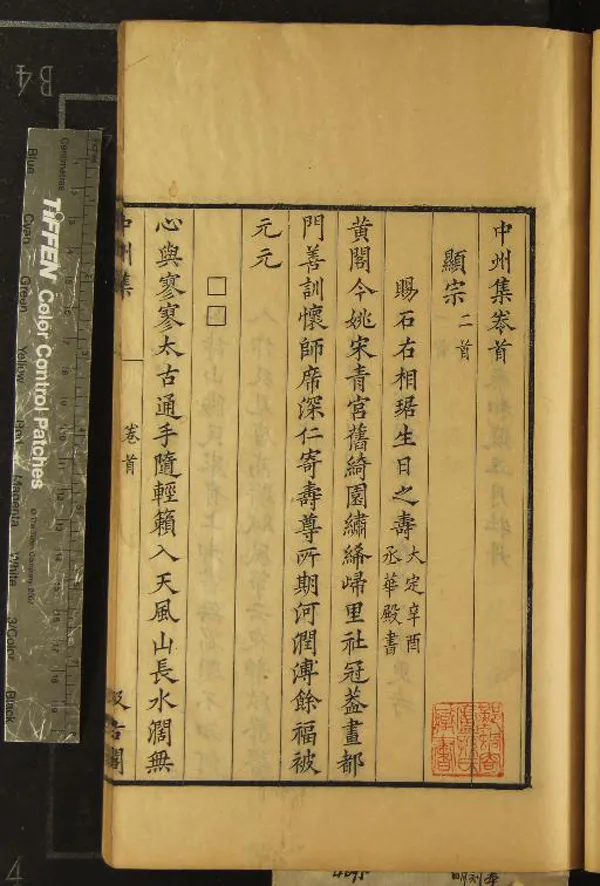 中州集卷首
顯宗二首
賜石右相琚生日之壽 大定辛酉
丞華殿書
黃閣今姚宋青宮舊綺園繡絺歸里社冠葢畫都
門善訓懷師席深仁寄壽尊所期河潤溥餘福被
元元
□□
心與寥寥太古通手隨輕籟入天風山長水濶無
中州集
卷首
汲古閣
TIFFEN Color Control Patches
Centimetres
Inches
Blue
Cyan
Green
Yellow
Red
Magenta
White
3/Color
Black
B4
4
明刻本